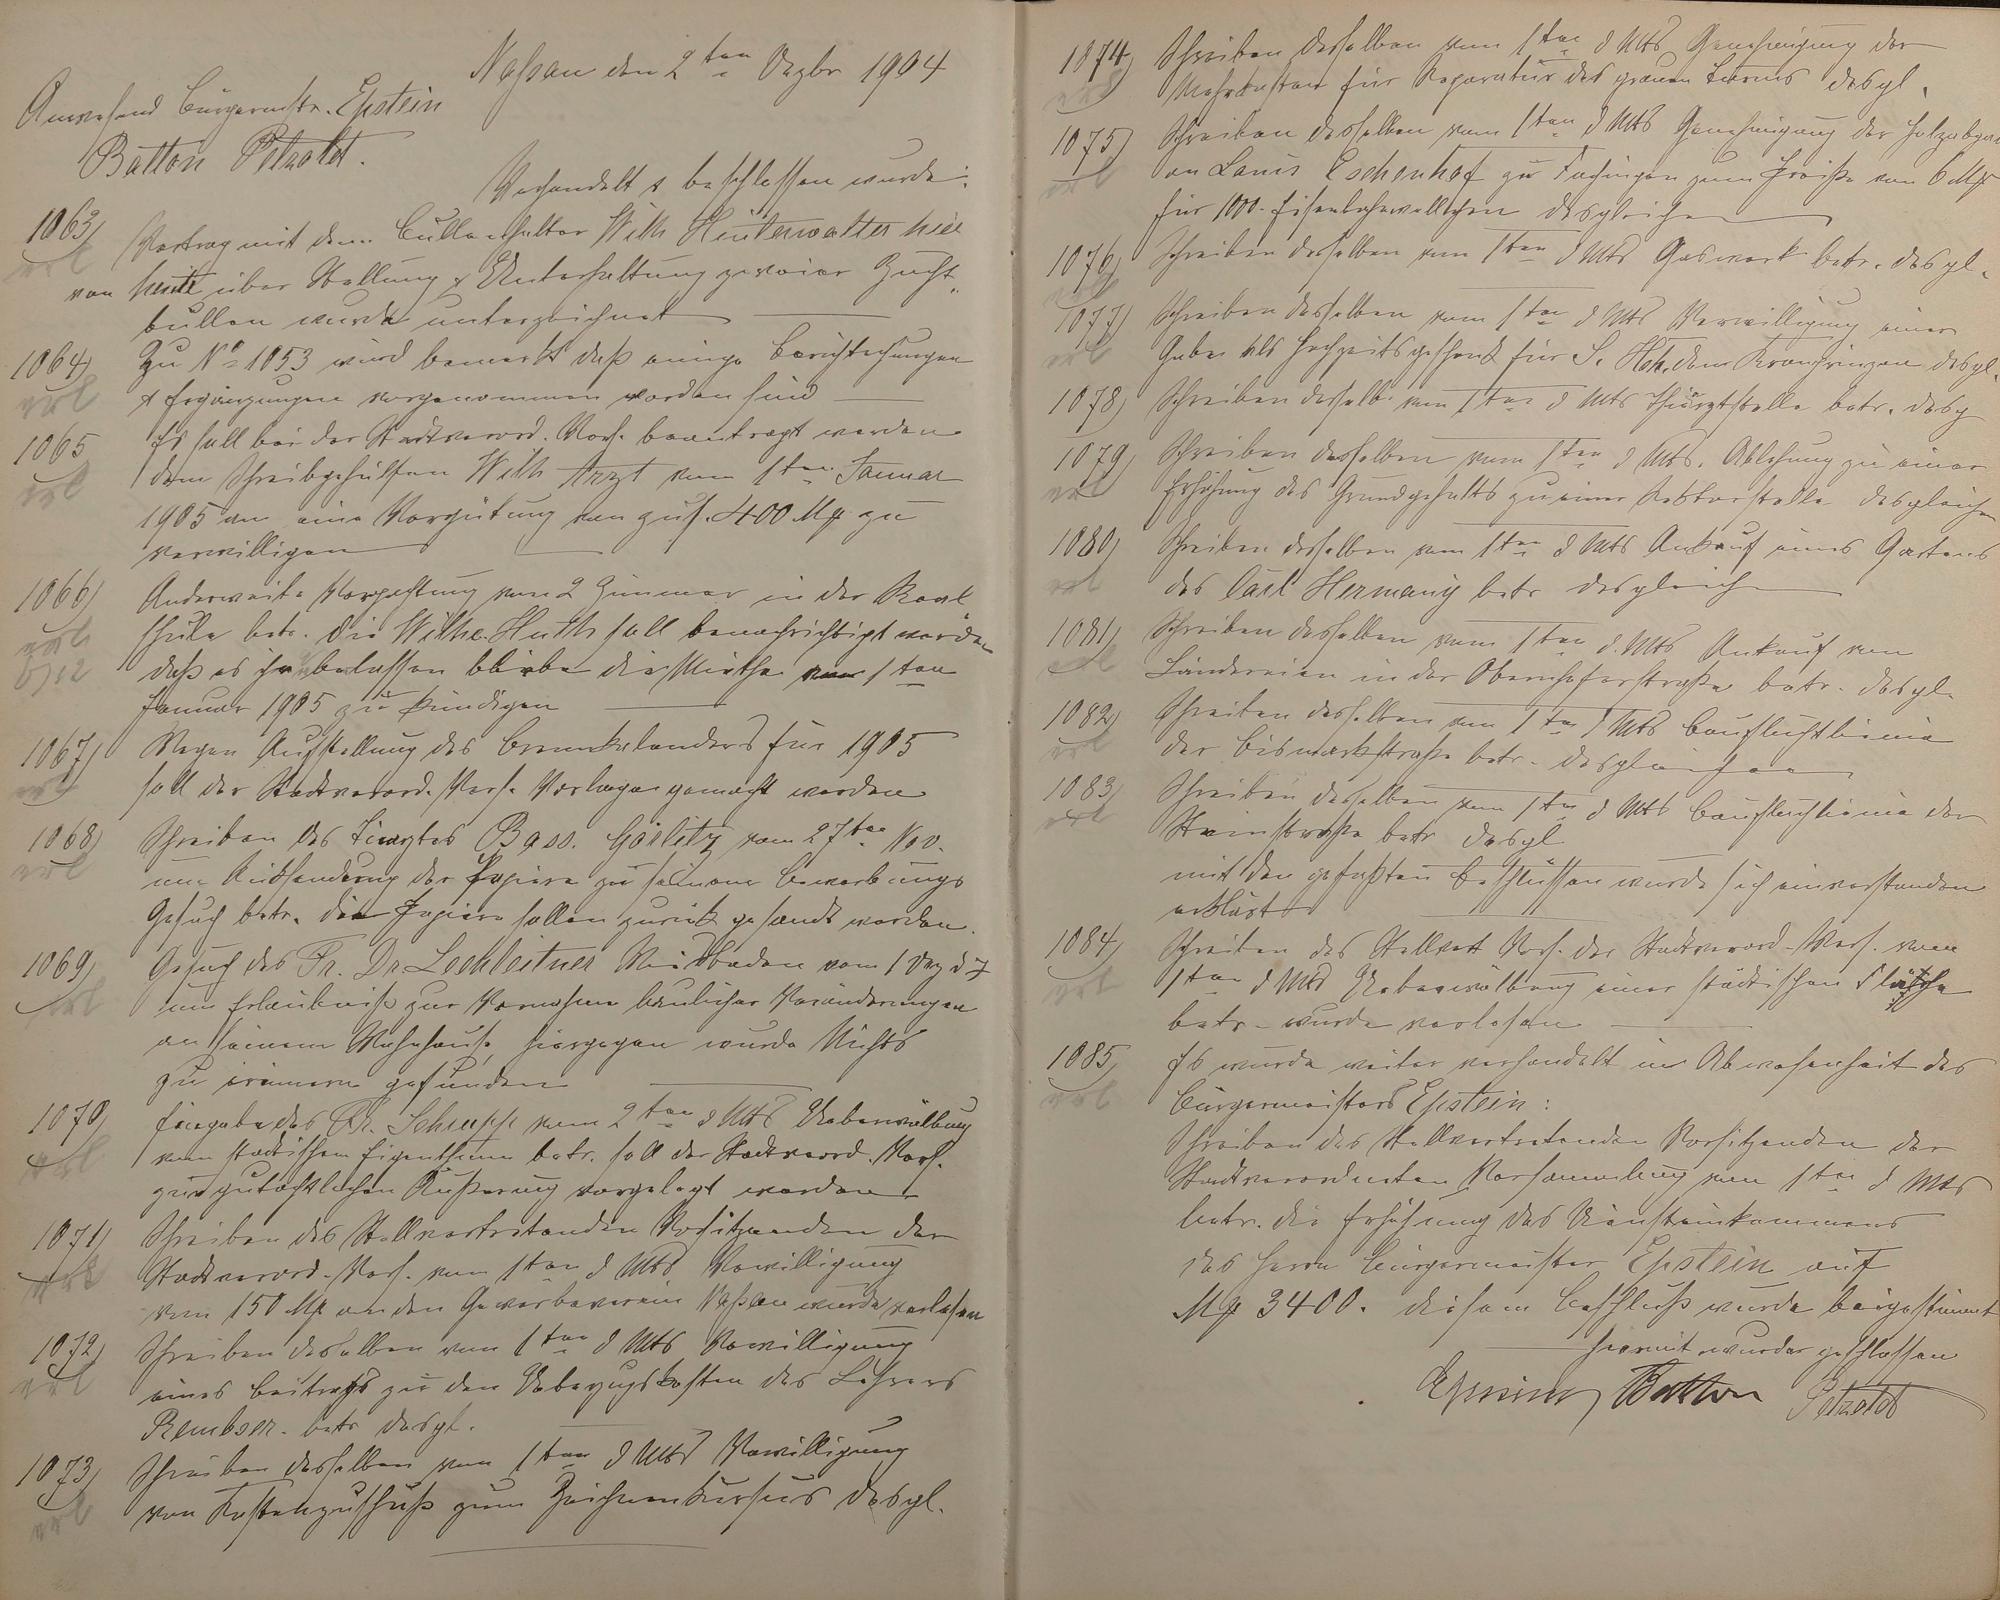 Nassau den 2ten Dezbr 1904
Anwesend Bürgermstr. Epstein
Batton Petzoldt.
Verhandelt & beschlossen wurde:
1063) Vertrag mit dem Bullenhalter Wilh Hinterwälter hier
erl
von heute über Stellung & Unterhaltung zweier Zucht-
bullen wurde unterzeichnet
1064) Zu No 1053 wird bemerkt daß einige Berichtigungen
erl & Ergänzungen vorgenommen worden sind
1065 Es soll bei der Stadtverord. Vers. beantragt werden
erl dem Schreibgehülfen Wilh Arzt vom 1ten Januar
1905 an eine Vergütung von zus. 400 Mk zu
verwilligen
1066) Anderweite Verpachtung von 2 Zimmer in der Real
erl schule betr. die Wilhe. Huth soll benachrichtigt werden
6/12 daß es ihr belassen bliebe die Miethe vom 1ten
Januar 1905 zu kündigen
1067) Wegen Aufstellung des Brennkalenders für 1905
erl soll der Stadtverord. Vers. Vorlage gemacht werden
1068) Schreiben des Bass. Görlitz vom 27ten Nov.
erl um Rücksendung der Papiere zu seinem Bewerbungs
Gesuch betr. die Papiere sollen zurück gesandt werden.
1069) Gesuch des Fr. Dr. Lechleitner Wiesbaden vom 1 Dez d J
erl um Erlaubniß zur Vornahme baulicher Veränderungen
an seinem Wohnhause, hiergegen wurde Nichts
zu erinnern gefunden
1070) Eingabe des Chr. Schrupp vom 2ten d Mts Ueberwölbung
erl vom städtischem Eigenthum betr. soll der Stadtverord. Vers.
zur gutachtlichen Äußerung vorgelegt werden
1071) Schreiben des Stellvertretenden Vorsitzenden der
erl Stadtverord. Vers. vom 1ten d Mts Verwilligung
von 150 Mk an den Gewerbeverein Nassau wurde verlesen
1072) Schreiben desselben vom 1ten d Mts Verwilligung
erl eines Beitrags zu den Umzugskosten des Lehrers
Rembser betr desgl.
1073) Schreiben desselben vom 1ten d Mts Verwilligung
erl von Kostenzuschuß zum Zeichnenkursus desgl.
1074) Schreiben desselben vom 1ten d Mts Genehmigung der
erl Mehrkosten für Reparatur des grauen Turms desgl.
1075) Schreiben desselben vom 1ten d Mts Genehmigung der Holzabgabe
erl an Louis Eschenhof zu Fachingen zum Preiße von 6 Mk
für 1000 desgleichen
1076) Schreiben desselben vom 1ten d Mts Gaswerk betr. desgl.
erl
1077) Schreiben desselben vom 1ten d Mts Verwilligung einer
erl Gabe als Hochzeitsgeschenk für S. Hoh. dem Kronprinzen desgl.
1078) Schreiben desselb. vom 1ten d Mts betr. desgl
1079) Schreiben desselben vom 1ten d Mts. Ablehnung zu einer
erl Erhöhung des Grundgehalts zu einer Rektorstelle desgleichen
1080) Schreiben desselben vom 1ten d Mts Ankauf eines Gartens
erl des Carl Hermany betr desgleich
1081) Schreiben desselben vom 1ten d. Mts Ankauf von
erl Ländereien in der Obernhoferstraße betr. desgl.
1082) Schreiben desselben vom 1ten d Mts Baufluchtlinie
erl der Bismarkstraße betr. desgleichen
1083) Schreiben desselben vom 1ten d Mts Baufluchtlinie der
erl Steinstraße betr desgl
mit den gefaßten Beschlüssen wurde sich einverstanden
erklärt
1084) Schreiben des Stellvert Vors. der Stadtverord. Vers. vom
erl 1ten d Mts Ueberwölbung einer städtischen Fläche
betr. wurde verlesen
1085) Es wurde weiter verhandelt in Abwesenheit des
erl Bürgermeisters Epstein:
Schreiben des Stellvertretenden Vorsitzenden der
Stadtverordneten Versammlung vom 1ten d Mts
betr. die Erhöhung des Diensteinkommens
des Herrn Bürgermeister Epstein auf
Mk 3400. diesem Beschluß wurde beigestimmt
hiermit wurde geschlossen
Batton Petzoldt